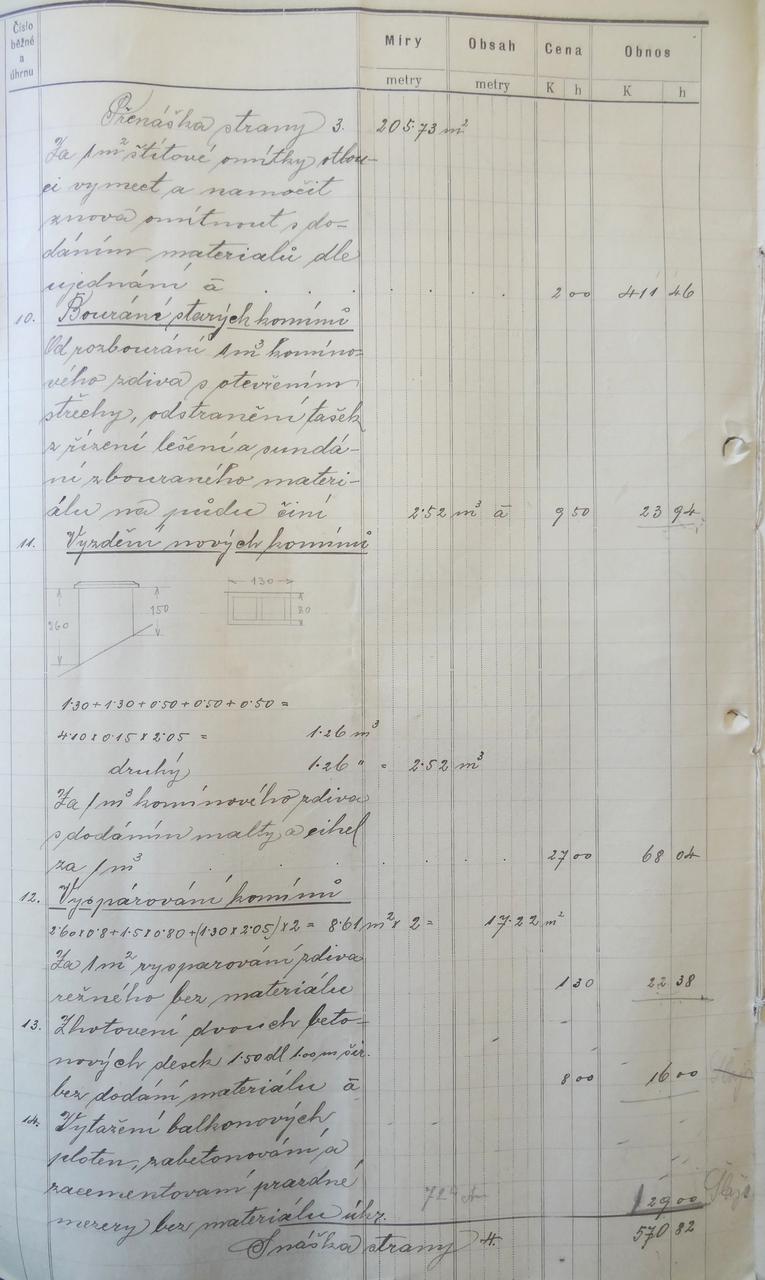 Číslo běžné a úhrnu
Míry Obsah Cena Obnos
metry metry K h K h
Přenáška strany 3. 205·73 m²
Za 1 m² štítové omítky otlou-
ci vymect a namočit
znova omítnout s do-
dáním materialů dle
ujednání ā . . . . . . 2 00 411 46
10. Bourání starých komínů
Od rozbourání 1 m³ komíno-
vého zdiva s otevřením
střechy, odstranění tašek
zřízení lešení a sundá-
ní zbouraného materi-
álu na půdu činí 2·52 m³ ā 9 50 23 94
11. Vyzdění nových komínů
130
260 150 80
1·30 + 1·30 + 0·50 + 0·50 + 0·50 =
4·10 x 0·15 x 2·05 = 1·26 m³
druhý 1·26 " = 2·52 m³
Za 1 m³ komínového zdiva
s dodáním malty a cihel
za 1 m³ . . . . . . 27 00 68 04
12. Vyspárování komínů
2·60 x 0·8 + 1·5 x 0·80 + (1·30 x 2·05) x 2 = 8·61 m² x 2 = 17·22 m²
Za 1 m² vysparování zdiva
režného bez materiálu 1 30 22 38
13. Zhotovení dvouch beto-
nových desek 1·50 dl 1·00 m šir.
bez dodání materiálu ā 8 00 16 00
14. Vytažení balkonových
ploten, zabetonování a
zacementovaní prazdné
mezery bez materiálu úhr. 29 00
Snáška strany 4. 570 82